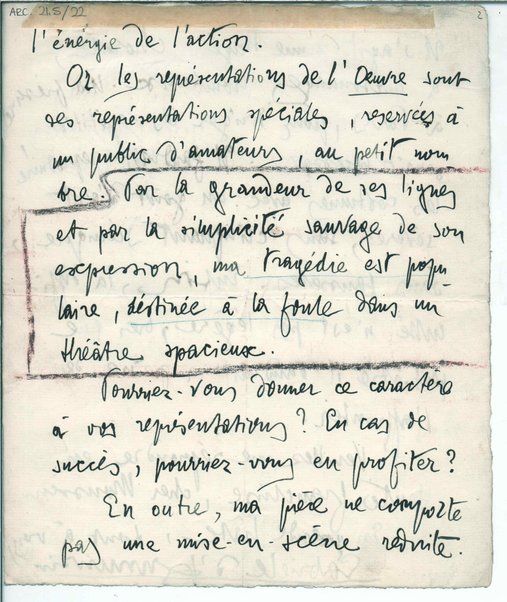 ARC. 21.5/22
2
l'énergie de l'action.
Or les représentations de l'Œuvre sont
des représentations spéciales, reservées à
un public d'amateurs, au petit nom
bre. Par la grandeur de ses lignes
et par la simplicité sauvage de son
expression ma tragédie est popu
laire, destinée à la foule dans un
théâtre spacieux.
Pourriez-vous donner ce caractère
à vos représentations ? En cas de
succès, pourriez-vous en profiter ?
En outre, ma pièce ne comporte
pas une mise-en-scène reduite.